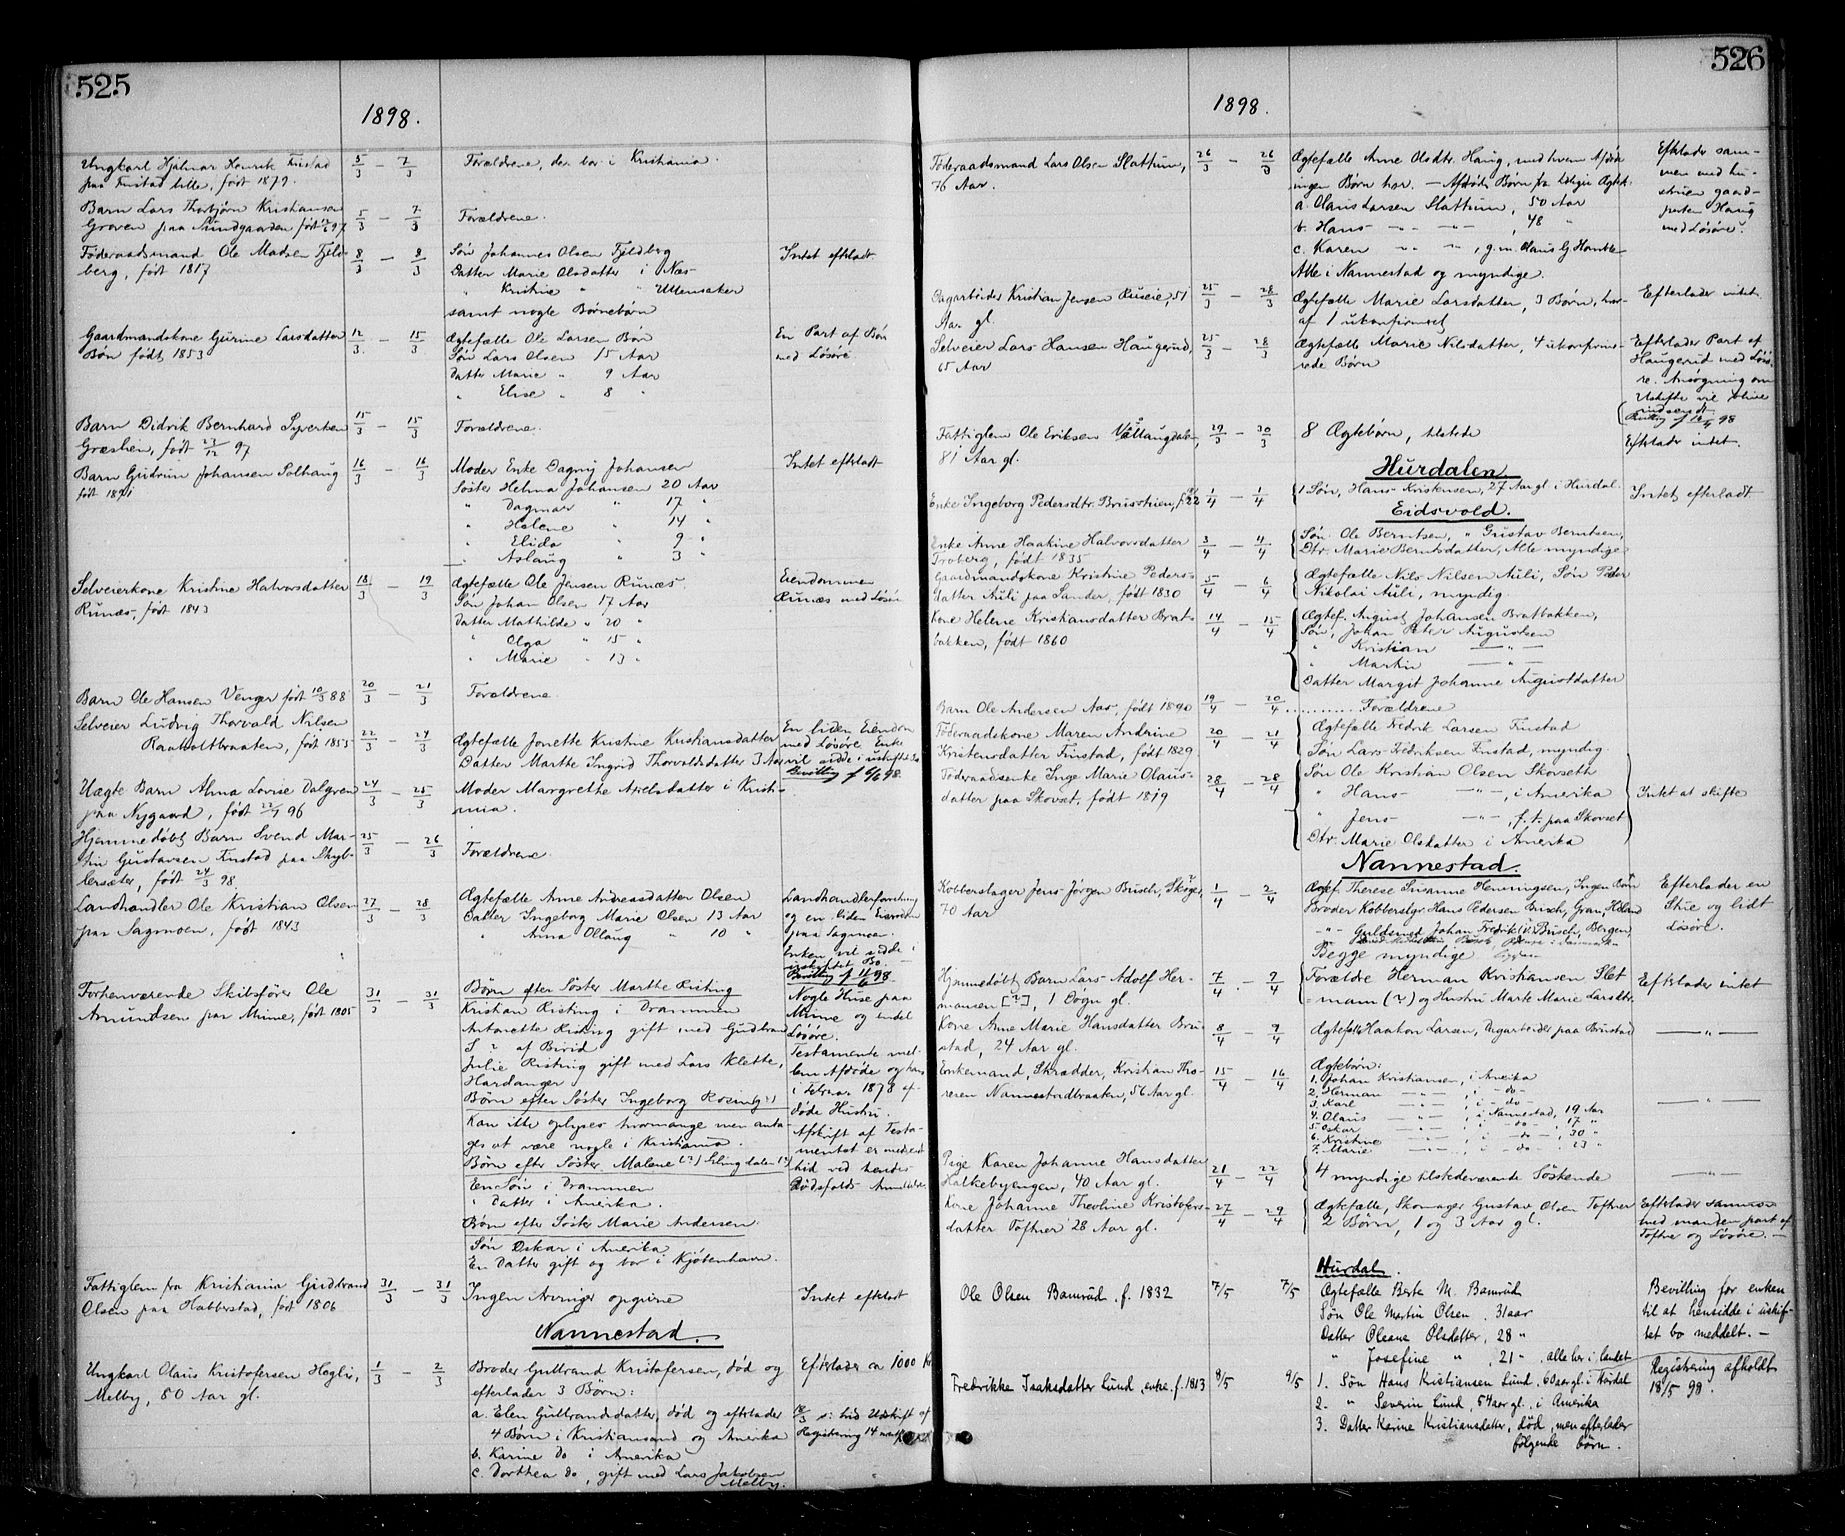 525
1898.
Ungkarl Hjalmar Henrik Finstad 5/3 — 7/3 Forældrene, der bor i Kristiania.
paa Finstad lille, født 1879.
Barn Lars Thorbjørn Kristiansen 5/3 — 7/3 Forældrene.
Groven paa Sundgaarden født 97
Föderaadsmand Ole Madsen Fjeld- 8/3 — 8/3 Søn Johannes Olsen Fjeldberg Intet efterladt
berg, født 1817 Datter Marie Olsdatter i Næs
" Kristine " " Ullensaker
samt nogle Børnebørn
Gaardmandskone Gurine Larsdatter 12/3 — 15/3 Ægtefælle Ole Larsen Bøn En Part af Bøn
Bøn født 1853 Søn Lars Olsen 15 Aar med Løsøre
Datter Marie " 9 Aar
" Elise " 8 "
Barn Didrik Bernhard Syversen 15/3 — 15/3 Forældrene.
født 23/12 97
Barn Gudrun Johansen Solhaug 16/3 — 16/3 Moder Enke Dagny Johansen Intet efterladt
født 1891 Søster Helma Johansen 20 Aar
" Dagmar " 17 "
" Helene " 14 "
" Elida " 9 "
" Aslaug " 3 "
Selveierkone Kristine Halvorsdatter 18/3 — 19/3 Ægtefælle Ole Jensen Runæs Eiendommen
Runæs, født 1843 Søn Johan Olsen 17 Aar Runæs med Løsøre
Datter Mathilde " 20 "
" Olga " 15 "
" Marie " 13 "
Barn Ole Hansen Venger født 10/3 88 20/3 — 21/3 Forældrene.
Selveier Ludvig Thorvald Nilsen
Raaholtbraaten, født 1855 22/3 — 24/3 Ægtefælle Jonette Kristine Kristiansdatter En liden Eiendom
Datter Marthe Ingrid Thorvaldsdatter 3 Aar med Løsøre. Enke
vil sidde i uskiftet Bo
Bevilling af 6/6 98.
Uægte Barn Alma Lovise Dalgren 24/3 — 25/3 Moder Margrethe Axelsdatter i Kristi-
paa Nygaard, født 22/7 96 ania.
Hjemmedøbt Barn Svend Mar- 25/3 — 26/3 Forældrene.
tin Gustavsen Finstad paa Skyb-
lersæter, født 24/3 98.
Landhandler Ole Kristian Olsen 27/3 — 28/3 Ægtefælle Anne Andreasdatter Olsen Landhandlerforretning
paa Sagmoen, født 1843 Datter Ingeborg Marie Olsen 13 Aar og en liden Eiendom
" Anna Ollaug " 10 " paa Sagmoen.
Enken vil sidde i
uskiftet Bo.
Bevilling af 11/6 98.
Forhenværende Skibsfører Ole 31/3 — 31/3 Børn efter Søster Marthe Risting Nogle Huse paa
Amundsen paa Minne, født 1805 Kristian Risting i Drammen Minne og endel
Antonette Risting gift med Gudbrand Løsøre.
S ? af Birid Testamente mel-
Julie Risting gift med Lars Klette, lem Afdøde og hans
Hardanger i Februar 1878 af-
Børn efter Søster Ingeborg Rosing(?) døde Hustru.
Kan ikke oplyses hvormange men anta- Afskrift af Testa-
ges at være nogle i Kristiania. mentet er medsendt
Børn efter Søster Malene (?) Elingdalen (?) hid ved hendes
En Søn i Drammen Dødsfalds-Anmeldelse.
" Datter i Amerika.
Børn efter Søster Marie Andersen.
Søn Oskar i Amerika
En Datter gift og bor i Kjøbenhavn.
Fattiglem fra Kristiania Gudbrand 31/3 — 31/3 Ingen Arvinger opgivne Intet efterladt
Olsen paa Habberstad, født 1806
Nannestad.
Ungkarl Olaus Kristofersen Heglin, 1/3 — 2/3 Broder Gulbrand Kristofersen, død og Efterlader ca 1000 Kr
Melby, 80 Aar gl. efterlader 3 Børn:
a. Elen Gulbrandsdatter, død og efterlader 18/3 s: hid Udskrift af
4 Børn i Kristiansand og Amerika Registering 14
b. Karine Do i Amerika
c. Dorthea do, gift med Lars Jakobsen
Melby.
526
1898.
Föderaadsmand Lars Olsen Slattum, 26/3 — 26/3 Ægtefælle Anne Olsdtr. Haug, med hvem Afdøde Efterlader sam-
76 Aar. ingen Børn har. — Afdødes Børn fra tidligere Ægtesk. men med hu-
a. Olaus Larsen Slattum, 50 Aar struen gaard-
b. Hans — " — — " — , 48 " parten Haug
c. Karen " " , g.m. Olaus G. med Løsøre.
Alle i Nannestad og myndige.
Dagarbeider Kristian Jensen Rueie, 51 25/3 — 28/3 Ægtefælle Marie Larsdatter, 3 Børn, hvor- Efterlader intet
Aar gl. af 1 ukonfirmeret
Selveier Lars Hansen Haugerud, 25/3 — 28/3 Ægtefælle Marie Nilsdatter, 4 ukonfirme- Efterlader Part af
65 Aar rede Børn Haugerud med Løsø-
re. Ansøgning om
Uskifte vil blive
indsendt.
Fattiglem Ole Eriksen Vællaugdalen, 29/3 — 30/3 8 Ægtebørn, tilstede Efterlader intet.
81 Aar gl.
Hurdalen.
Enke Ingeborg Pedersdtr. Brustuen, f. 22 1/4 — 1/4 1 Søn, Hans Kristensen, 27 Aar gl. i Hurdal. Intet efterladt
Eidsvold.
Enke Anne Haakine Halvorsdatter 3/4 — 4/4 Søn Ole Berntsen, " Gustav Berntsen,
Froberg, født 1835 Dtr. Marie Berntsdatter, Alle myndige
Gaardmandskone Kristine Peders- 5/4 — 6/4 Ægtefælle Nils Nilsen Auli, Søn Peder
datter Auli paa Sander, født 1830 Nikolai Auli, myndig
Kone Helene Kristiansdatter Brat- 14/4 — 15/4 Ægtef. August Johansen Bratbakken,
bakken, født 1860 Søn, Johan Peter Augustsen
" Kristian — " —
" Martin — " —
Datter Margit Johanne Augustdatter
Barn Ole Andersen Aas, født 1890 19/4 — 20/4 Forældrene
Föderaadskone Maren Andrine 20/4 — 21/4 Ægtefælle Fredrik Larsen Finstad
Kristensdatter Finstad, født 1829 Søn Lars Fredriksen Finstad, myndig
Föderaadsenke Inge Marie Olaus- 28/4 — 28/4 Søn Ole Kristian Olsen Skovseth
datter paa Skovset, født 1819 " Hans — " — , i Amerika Intet at skifte
" Jens — " — , f. t. paa Skovset
Dtr. Marie Olsdatter i Amerika
Nannestad.
Kobberslager Jens Jørgen Busch, Skøger, 1/4 — 2/4 Ægtef. Therese Susanne Henningsen, Ingen Børn Efterlader en
70 Aar Broder Kobberslgr. Hans Pedersen Busch, Gran, Stue og lidt
— " — Guldsmed Johan Fredrik Busch, Bergen, Løsøre.
Begge myndige
Hjemmedøbt Barn Lars Adolf Her- 7/4 — 9/4 Forældre Herman Kristiansen Slet- Efterlader intet
mansen [?], 1 Døgn gl. mam (?) og Hustru Marte Marie Larsdtr.
Kone Anne Marie Hansdatter Bru- 8/4 — 9/4 Ægtefælle Haakon Larsen, Dagarbeider paa Brustad — " —
stad, 24 Aar gl.
Enkemand, Skrædder, Kristian Tho- 15/4 — 16/4 Ægtebørn:
resen Nannestadbraaten, 56 Aar gl. 1. Johan Kristiansen, i Amerika
2. Herman — " — , i — do —
3. Karl — " — , i — do — — " —
4. Olaus — " — , i Nannestad, 19 Aar
5. Oskar — " — , i — do — , 17 "
6. Kristine — " — , i — do — , 30 "
7. Marie — " — , i — do — , 23 "
Pige Karen Johanne Hansdatter 21/4 — 22/4 4 myndige tilstedeværende Søskende — " —
Holkebyengen, 40 Aar gl.
Kone Johanne Theoline Kristofers- 27/4 — 29/4 Ægtefælle, Skomager Gustav Olsen Toftner Efterlader sammen
datter Toftner 28 Aar gl. 2 Børn, 1 og 3 Aar gl. med manden part af
Toftner og Løsøre. —
Hurdal.
Ole Olsen Bamrud. f. 1832 7/5 7/5 Ægtefælle Berte M. Bamrud Bevilling for enken
Søn Ole Martin Olsen. 31 aar til at hensidde i uskif-
Datter Oleane Olsdatter, 28 " tet bo meddelt. —
" Josefine " , 21 " . alle her i landet
Fredrikke Isaksdatter Lund, enke. f. 1813 8/5 9/5 1. Søn Hans Kristiansen Lund. 60 aar gl. i Hurdal Registering afholdt
2. " Severin Lund, 54 aar gl. , i Amerika 18/5 98.
3. Datter Karine Kristiansdatter, død, men efterlader
følgende børn.